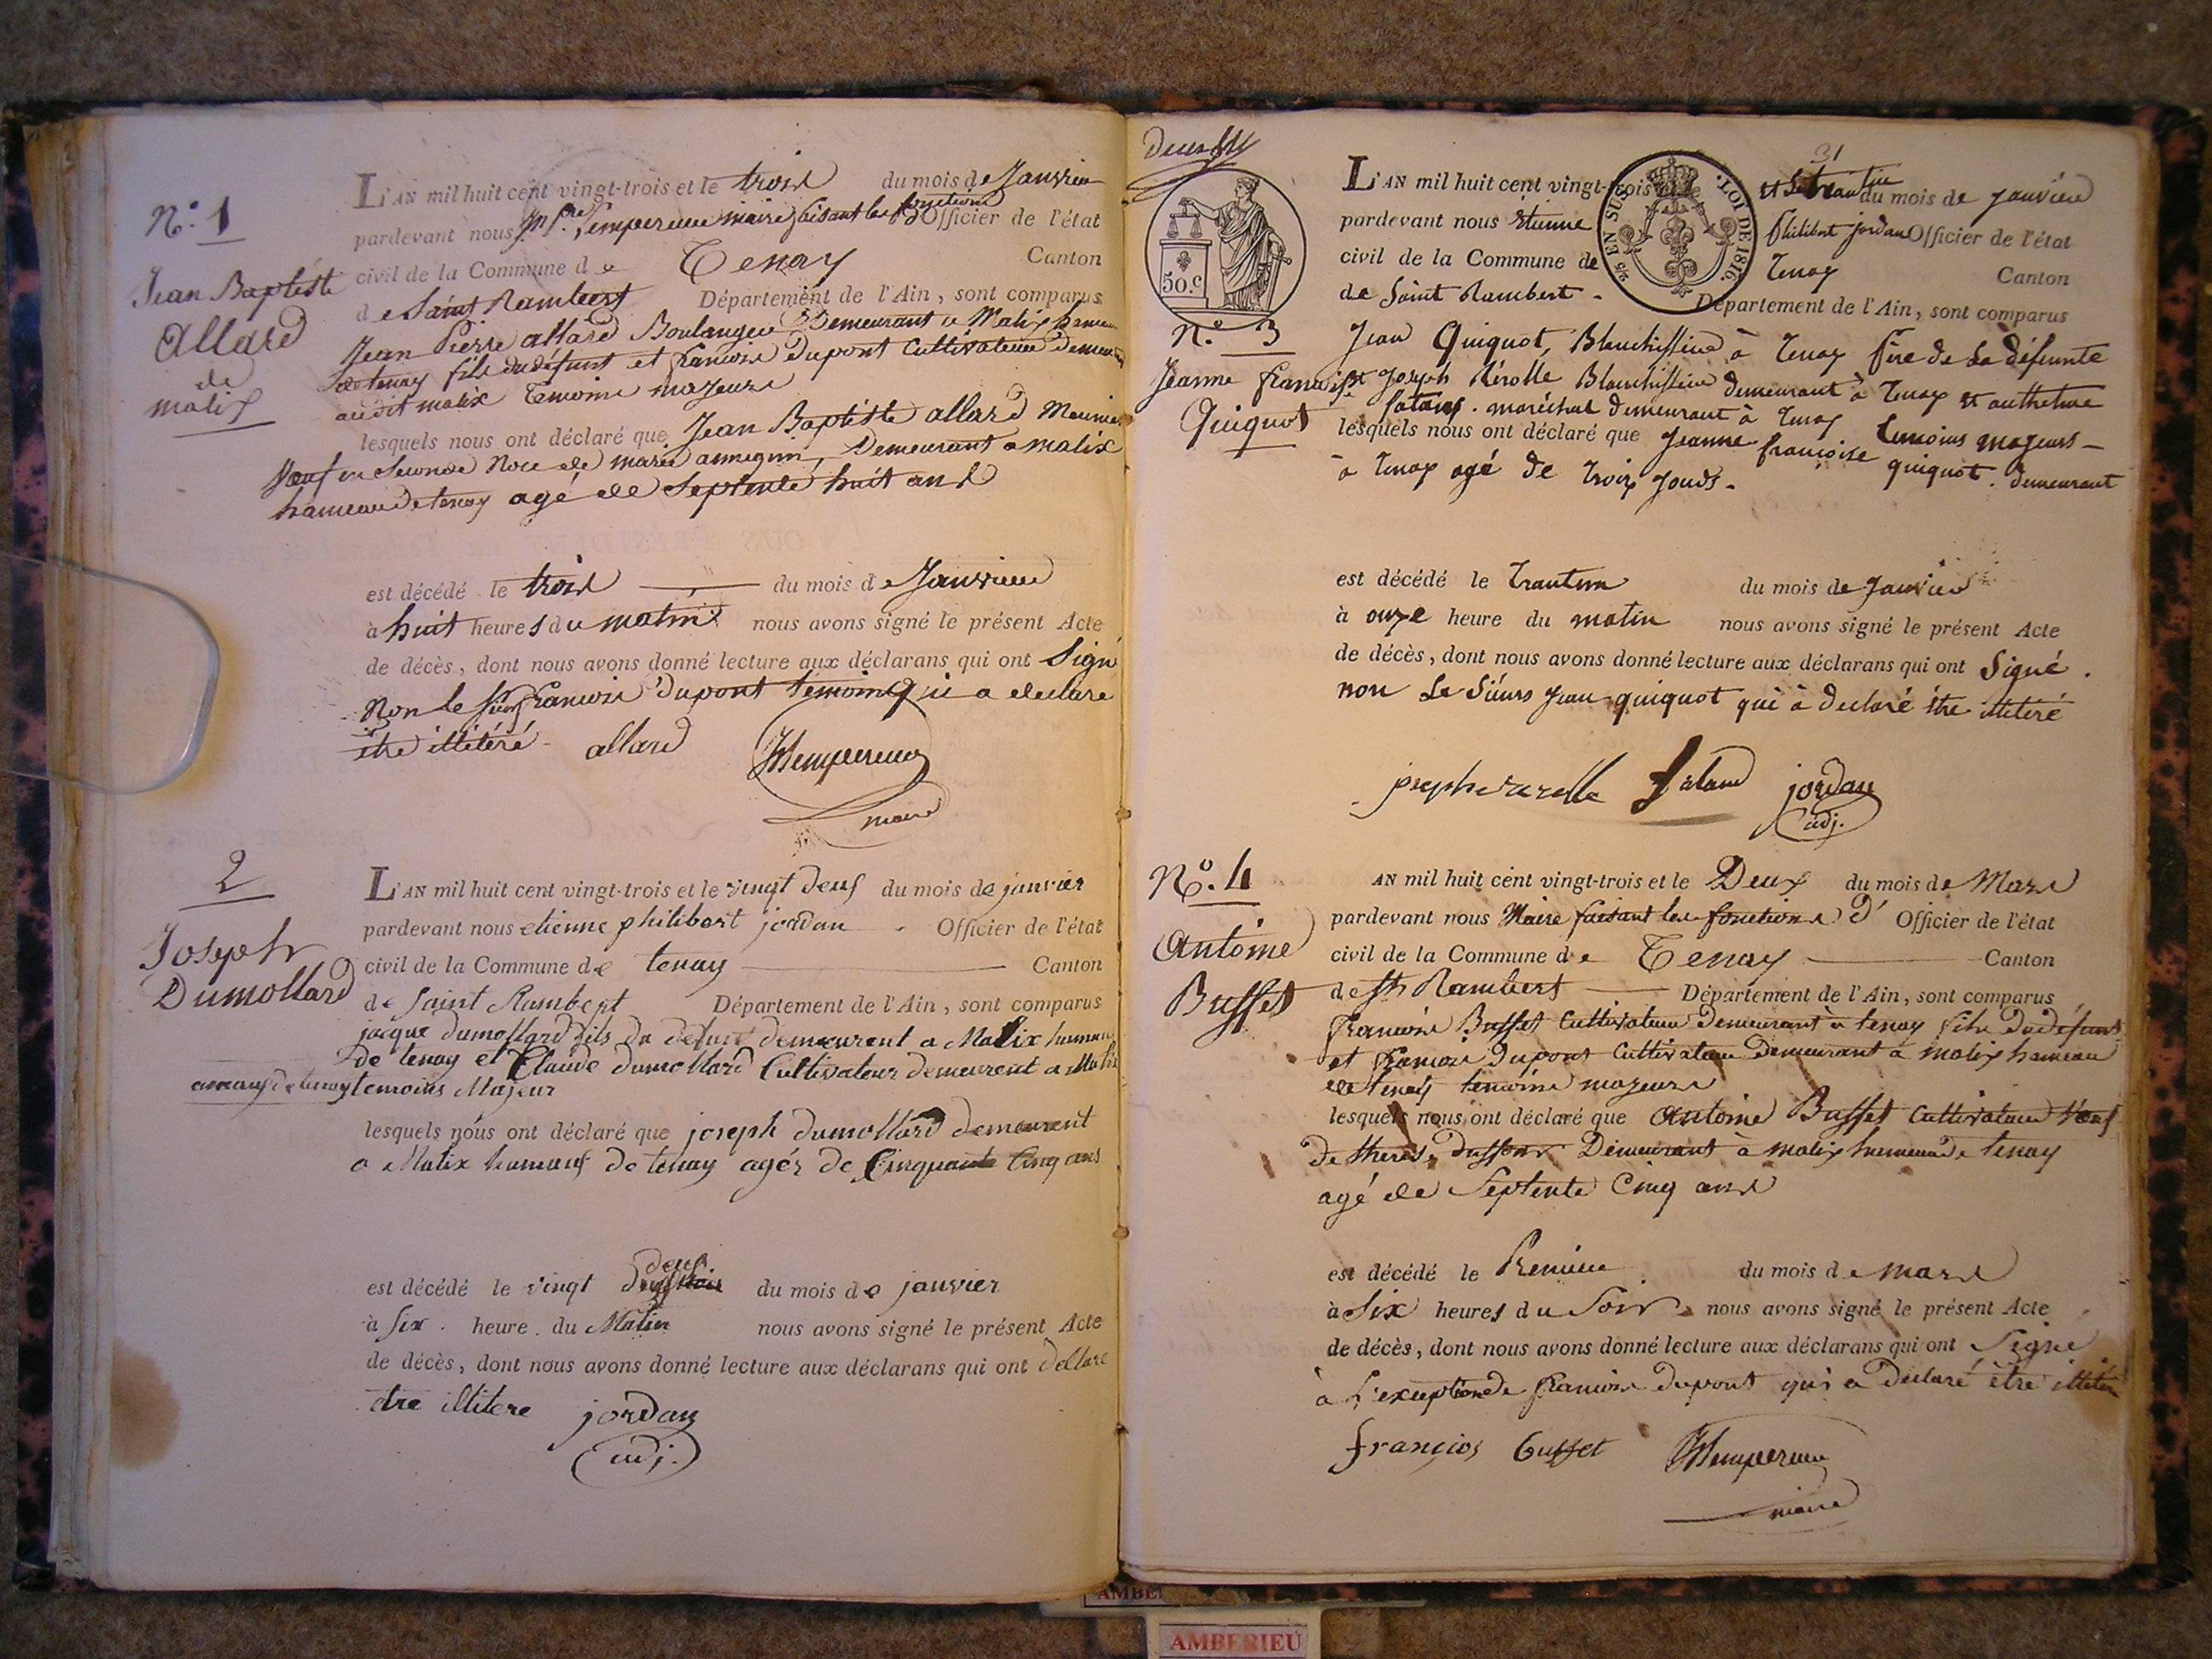 N.° 1
Jean Baptiste
Allard
de
malix
L'AN mil huit cent vingt-trois et le trois du mois de Janvier
pardevant nous Lempereur maire faisant les fonctions d' Officier de l'état
civil de la Commune de Tenay Canton
de Saint Rambert Département de l'Ain, sont comparus
Jean Pierre allard Boulanger Demeurant a Malix hameau
de tenay fils du défunt et francois Dupont Cultivateur demeurant
audit malix temoins majeurs
lesquels nous ont déclaré que Jean Baptiste allard Meunier
Veuf en Seconde Noce de marie Demeurant a malix
hameau de tenay agé de Septente huit ans
est décédé le trois du mois de Janvier
à huit heures du matin nous avons signé le présent Acte
de décès, dont nous avons donné lecture aux déclarans qui ont Signé
Non le Sieur francois Dupont temoin qui a declaré
être illitéré allard Lempereur
maire
2
Joseph
Dumollard
L'AN mil huit cent vingt-trois et le vingt deux du mois de janvier
pardevant nous etienne philibert jordan Officier de l'état
civil de la Commune de tenay Canton
de Saint Rambert Département de l'Ain, sont comparus
jacque dumollard fils du defunt demeurent a Malix hameau
de tenay et Claude dumollard Cultivateur demeurent a Malix
amaux de tenay temoins Majeur
lesquels nous ont déclaré que joseph dumollard demeurent
a Malix hamaux de tenay agés de Cinquante Cinq ans
deux
est décédé le vingt du mois de janvier
à Six heure du Matin nous avons signé le présent Acte
de décès, dont nous avons donné lecture aux déclarans qui ont dellare
etre illitere jordan
adj.
50.c
EN SUS
LOI DE 1816.
N.° 3
Jeanne françoise
Quiquot
31
L'AN mil huit cent vingt-trois et le du mois de janvier
pardevant nous Etienne Philibert jordan Officier de l'état
civil de la Commune de Tenay Canton
de Saint Rambert Département de l'Ain, sont comparus
Jean Quiquot, Blanchisseur à Tenay Père de la défunte
et Joseph Blanchisseur demeurant à Tenay et
maréchal demeurant à Tenay temoins majeurs
lesquels nous ont déclaré que Jeanne françoise quiquot demeurant
à Tenay agé de trois jours
est décédé le trantun du mois de janvier
à onze heure du matin nous avons signé le présent Acte
de décès, dont nous avons donné lecture aux déclarans qui ont Signé.
non Le Sieurs jean quiquot qui à declaré être illitéré
joseph jordan
adj.
N.° 4
Antoine
Buffet
AN mil huit cent vingt-trois et le Deux du mois de Mars
pardevant nous Maire faisant les fonctions d' Officier de l'état
civil de la Commune de Tenay Canton
de St Rambert Département de l'Ain, sont comparus
francois Buffet Cultivateur Demeurant à tenay fils du défunt
et francois Dupont Cultivateur Demeurant à malix hameau
de tenay temoins majeurs
lesquels nous ont déclaré que Antoine Buffet Cultivateur Veuf
de Demeurant à malix hameau de tenay
agé de Septente Cinq ans
est décédé le Premier du mois de mars
à Six heures du Soir nous avons signé le présent Acte
de décès, dont nous avons donné lecture aux déclarans qui ont Signé
à L'exception de francois dupont qui a déclaré être illitéré
françios buffet Lempereur
maire
AMBERIEU